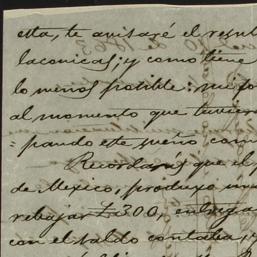 esta, te avisaré el resul
laconicas; y como tiene
lo menos posible: mi fo
al momento que tuvier
=pando este sueño como
Recordarás que el p
de Mexico, produxo un
rebajar £300,
con el saldo contaba, y